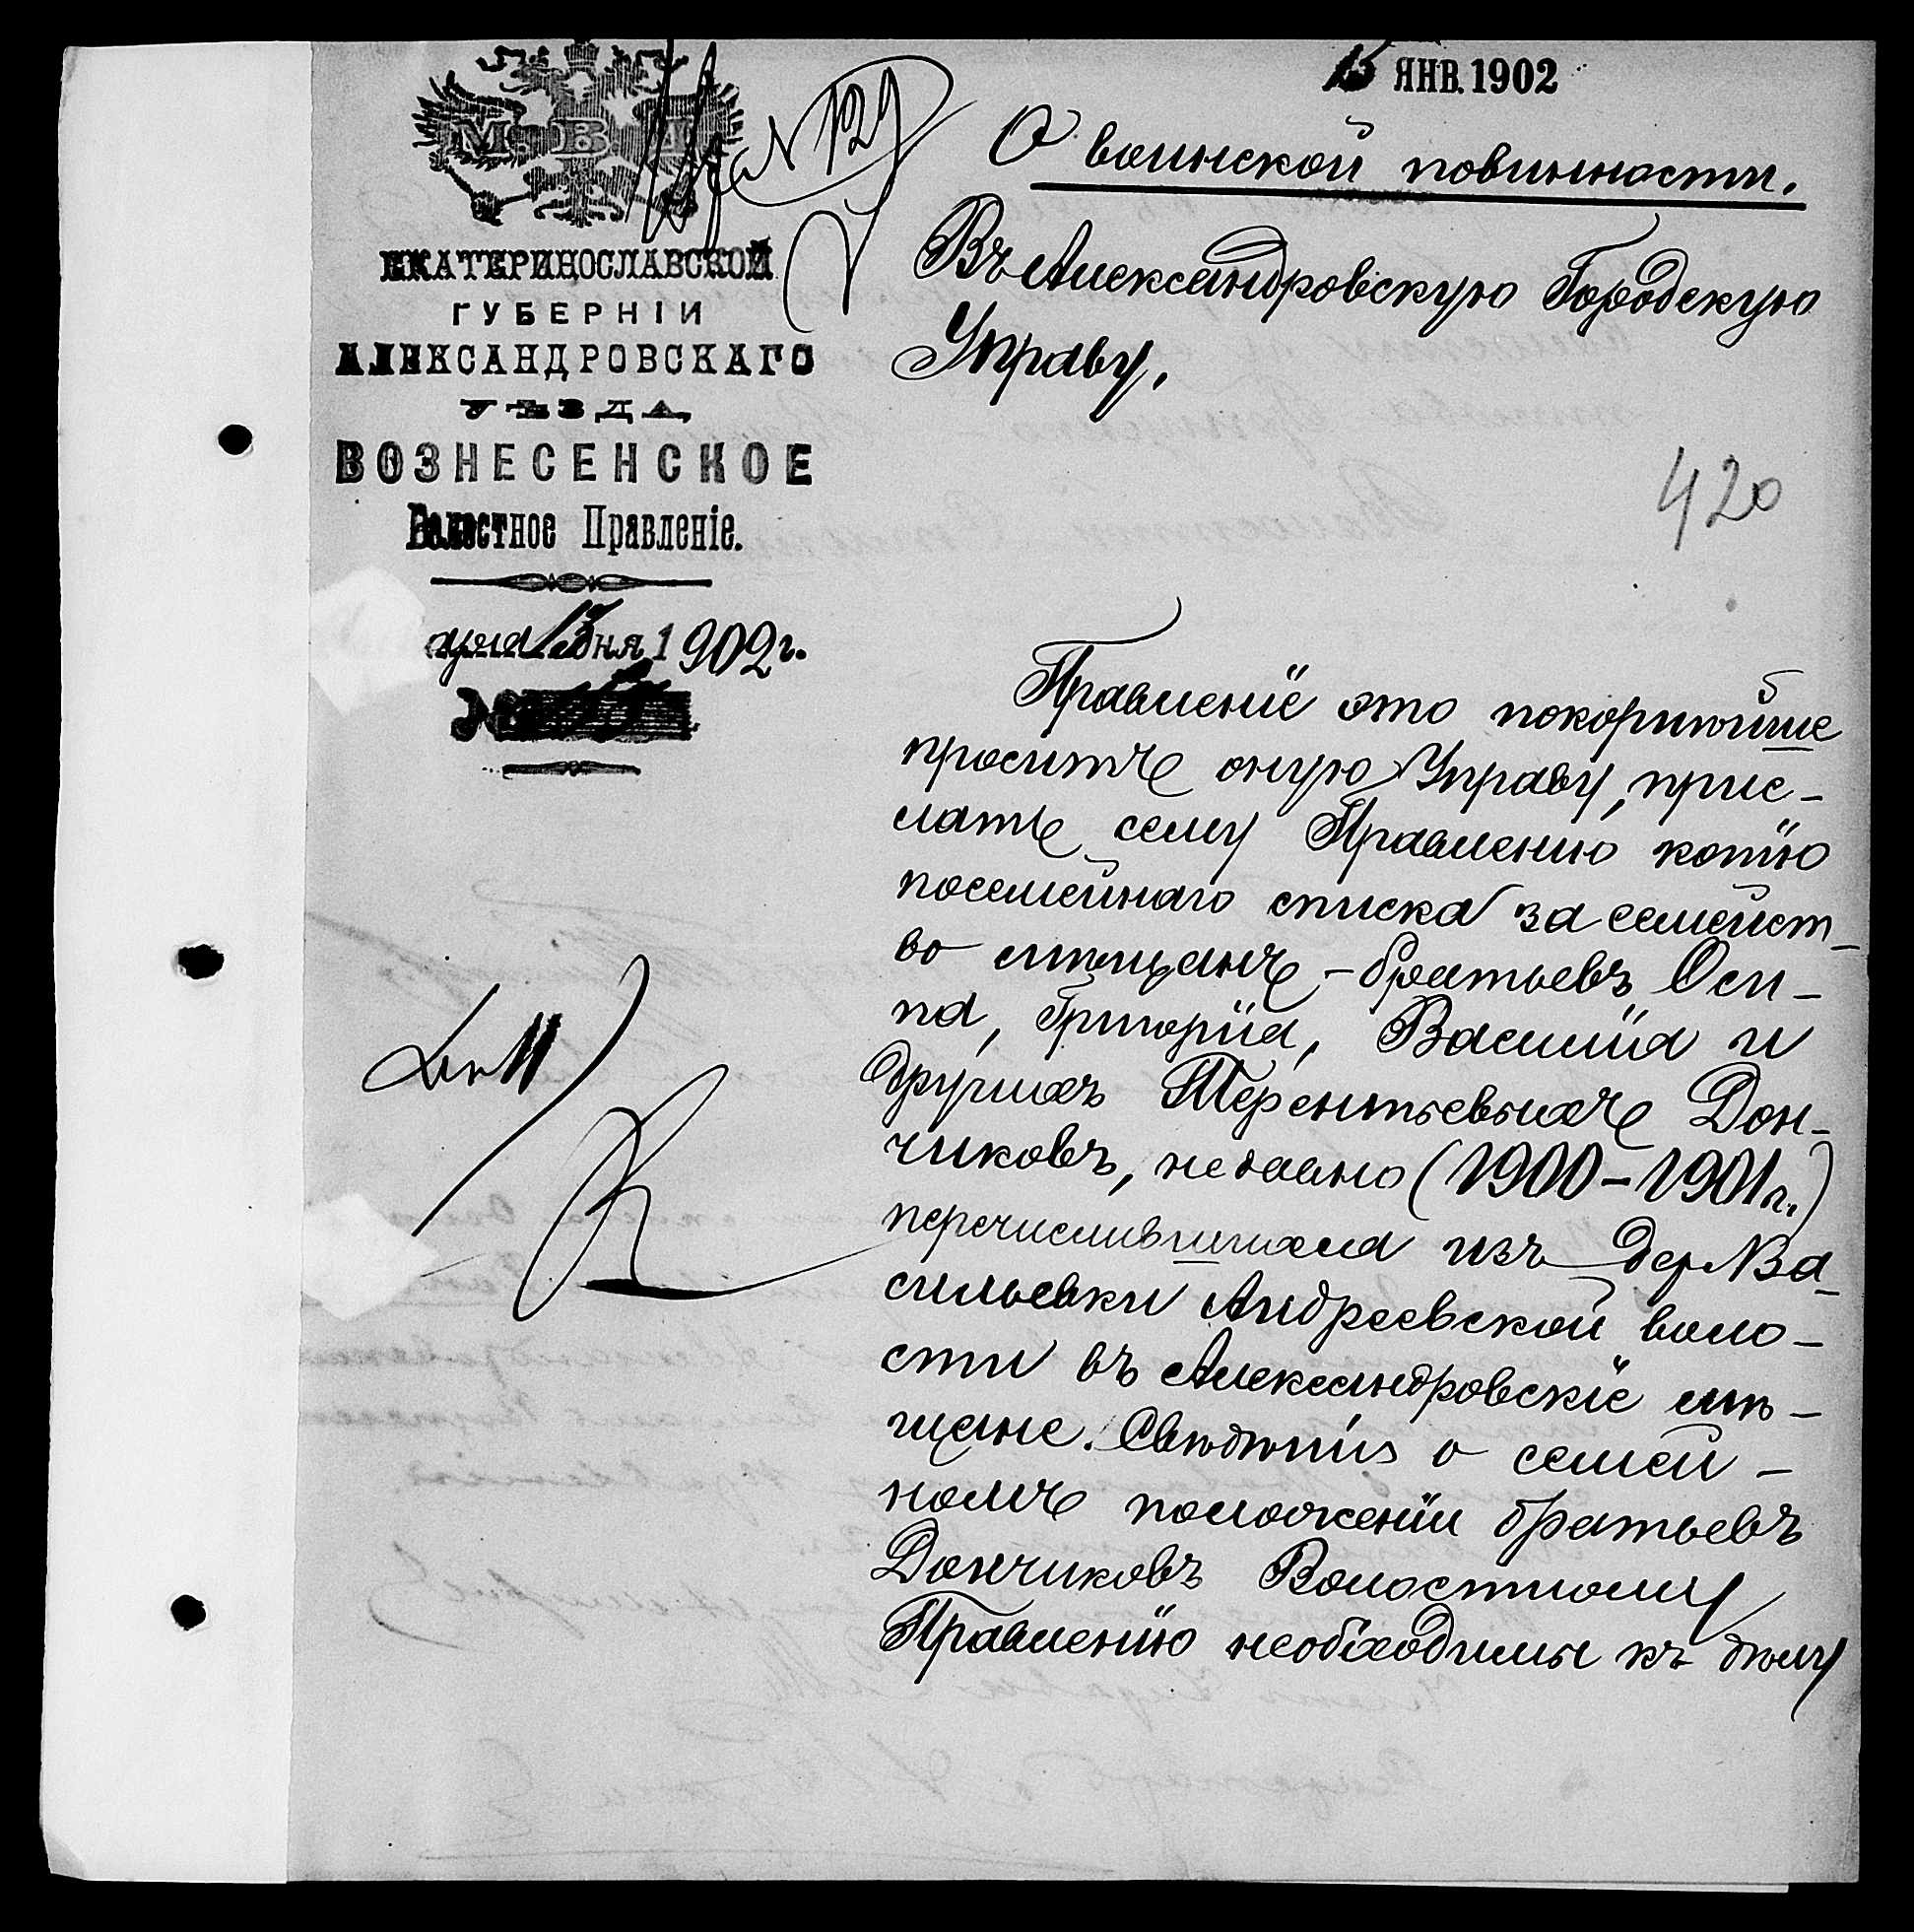 15 ЯНВ. 1902
М. В. Д.
№ 129
О воинской повинности.
ЕКАТЕРИНОСЛАВСКОЙ
ГУБЕРНІИ
АЛЕКСАНДРОВСКАГО
УѢЗДА
ВОЗНЕСЕНСКОЕ
Волостное Правленіе.
дня 1902 г.
Въ Александровскую Городскую
Управу.
420
Правленіе это покорнѣйше
проситъ оную Управу, прис-
лать сему Правленію копію
посемейнаго списка за семейст-
во мѣщанъ - братьевъ Оси-
па, Григорія, Василія и
другихъ Терентьевыхъ Дон-
чиковъ, недавно (1900-1901 г.)
перечислившихся изъ дер. Ва-
сильевки Андреевской воло-
сти въ Александровскіе мѣ-
щане. Свѣдѣнія о семей-
номъ положеніи братьевъ
Дончиковъ Волостному
Правленію необходимы къ дѣлу